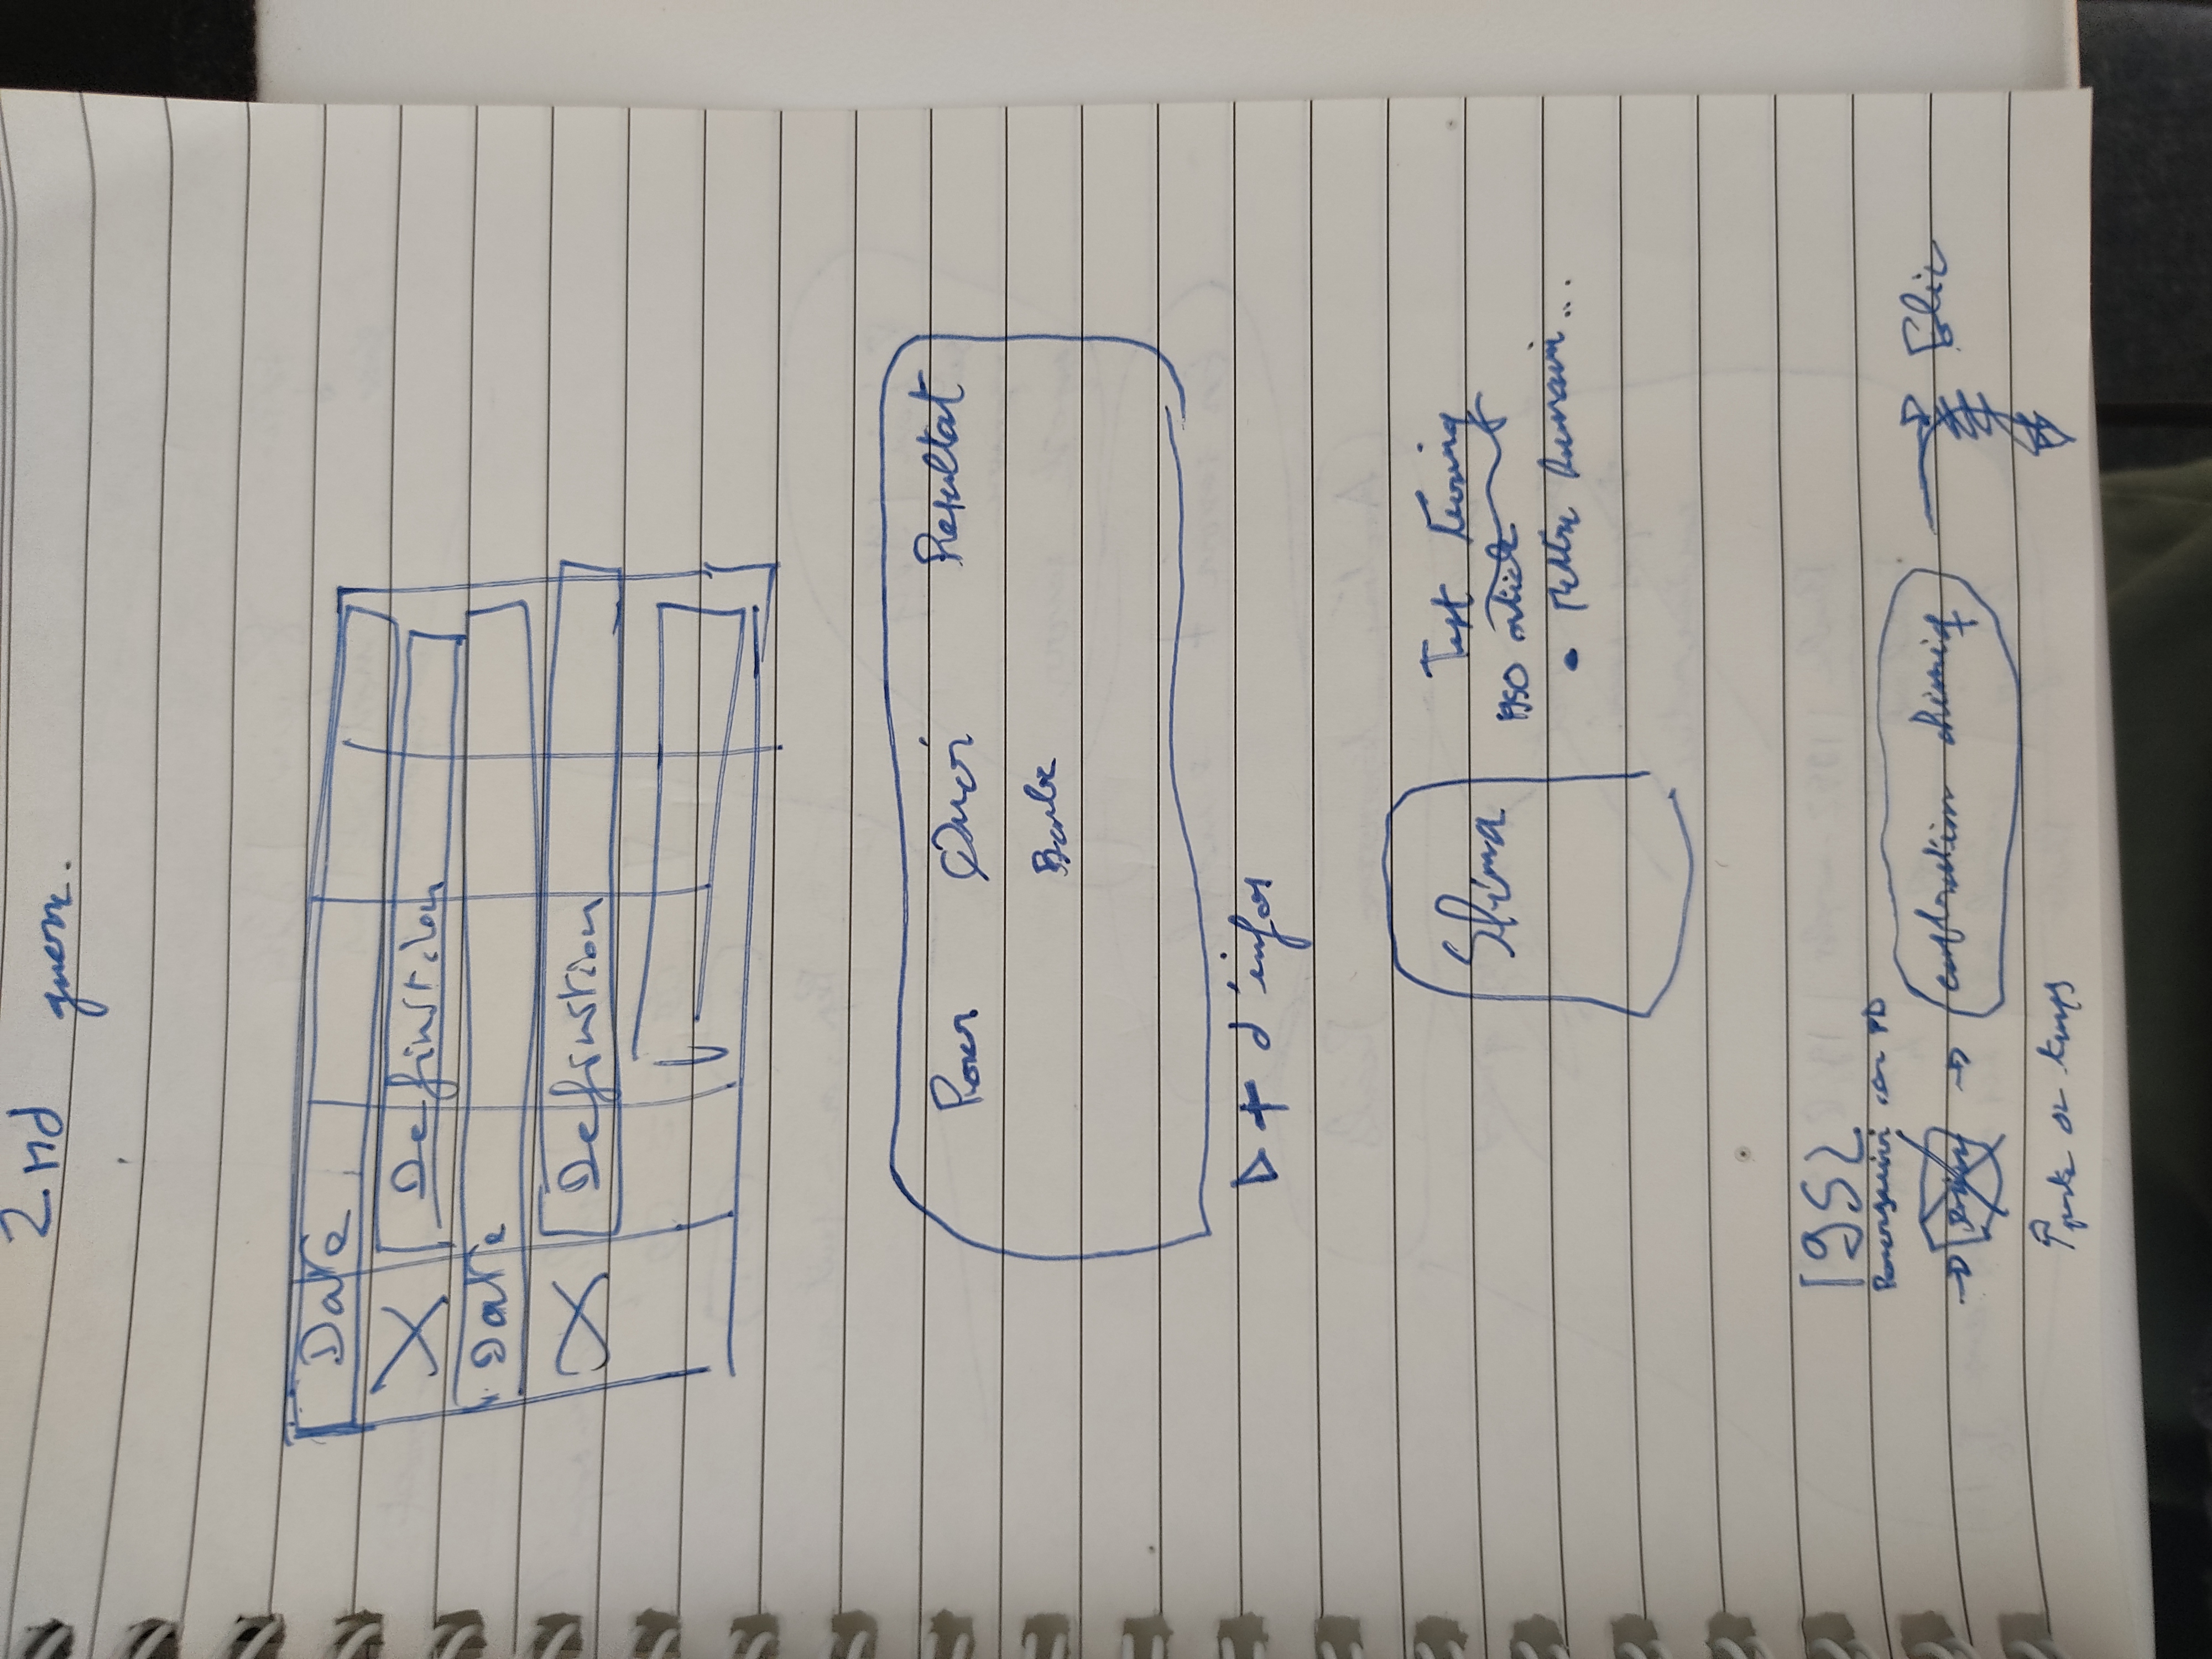 2nd guerre.
Date
Definition
Date
Definition
Pour Quoi Resultat
Bombe
+ d'infos
Test Turing
1950 article
• Mettre humain...
1952
car PD
→ → castration chimiq
perte de temps